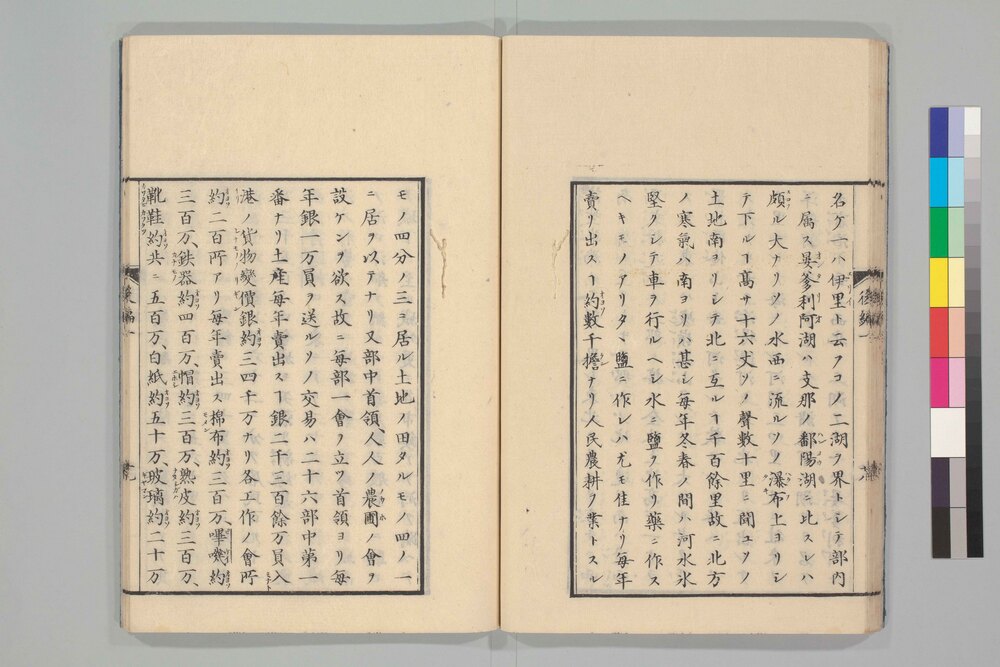 名ケ一ハ伊里ト云フコノ二湖ヲ界トシテ部内
ニ属ス晏爹利阿湖ハ支那ノ鄱陽湖ニ比スレハ
頗ル大ナリソノ水西ニ流ルソノ瀑布上ヨリシ
テ下ルヿ髙サ十六丈ソノ聲數十里ニ聞ユソノ
土地南ヨリシテ北ニ亙ルヿ千百餘里故ニ北方
ノ寒氣ハ南ヨリハ甚シ毎年冬春ノ間ハ河水氷
堅クシテ車ヲ行ルヘシ水ニ鹽ヲ作リ藥ニ作ス
ヘキモノアリタヽ鹽ニ作レハ尤モ佳ナリ毎年
賣リ出スヿ約數千擔ナリ人民農耕ヲ業トスル
後編一
モノ四分ノ三ニ居ル土地ノ田タルモノ四ノ一
ニ居ヲ以テナリ又部中首領人人ノ農圃ノ會ヲ
設ケンヿヲ欲ス故ニ毎部一會ヲ立ツ首領ヨリ毎
年銀一万員ヲ送ルソノ交易ハ二十六部中第一
番ナリ土産毎年賣出スヿ銀二千三百餘万員入
港ノ貨物變價銀約三四千万ナリ各工作ノ會所
約二百所アリ毎年賣出ス棉布約三百万、嗶嘰約
三百万、鉄器約四百万、帽約三百万、熟皮約三百万、
靴鞋約共ニ五百万、白紙約五十万玻璃約二十万
後編一